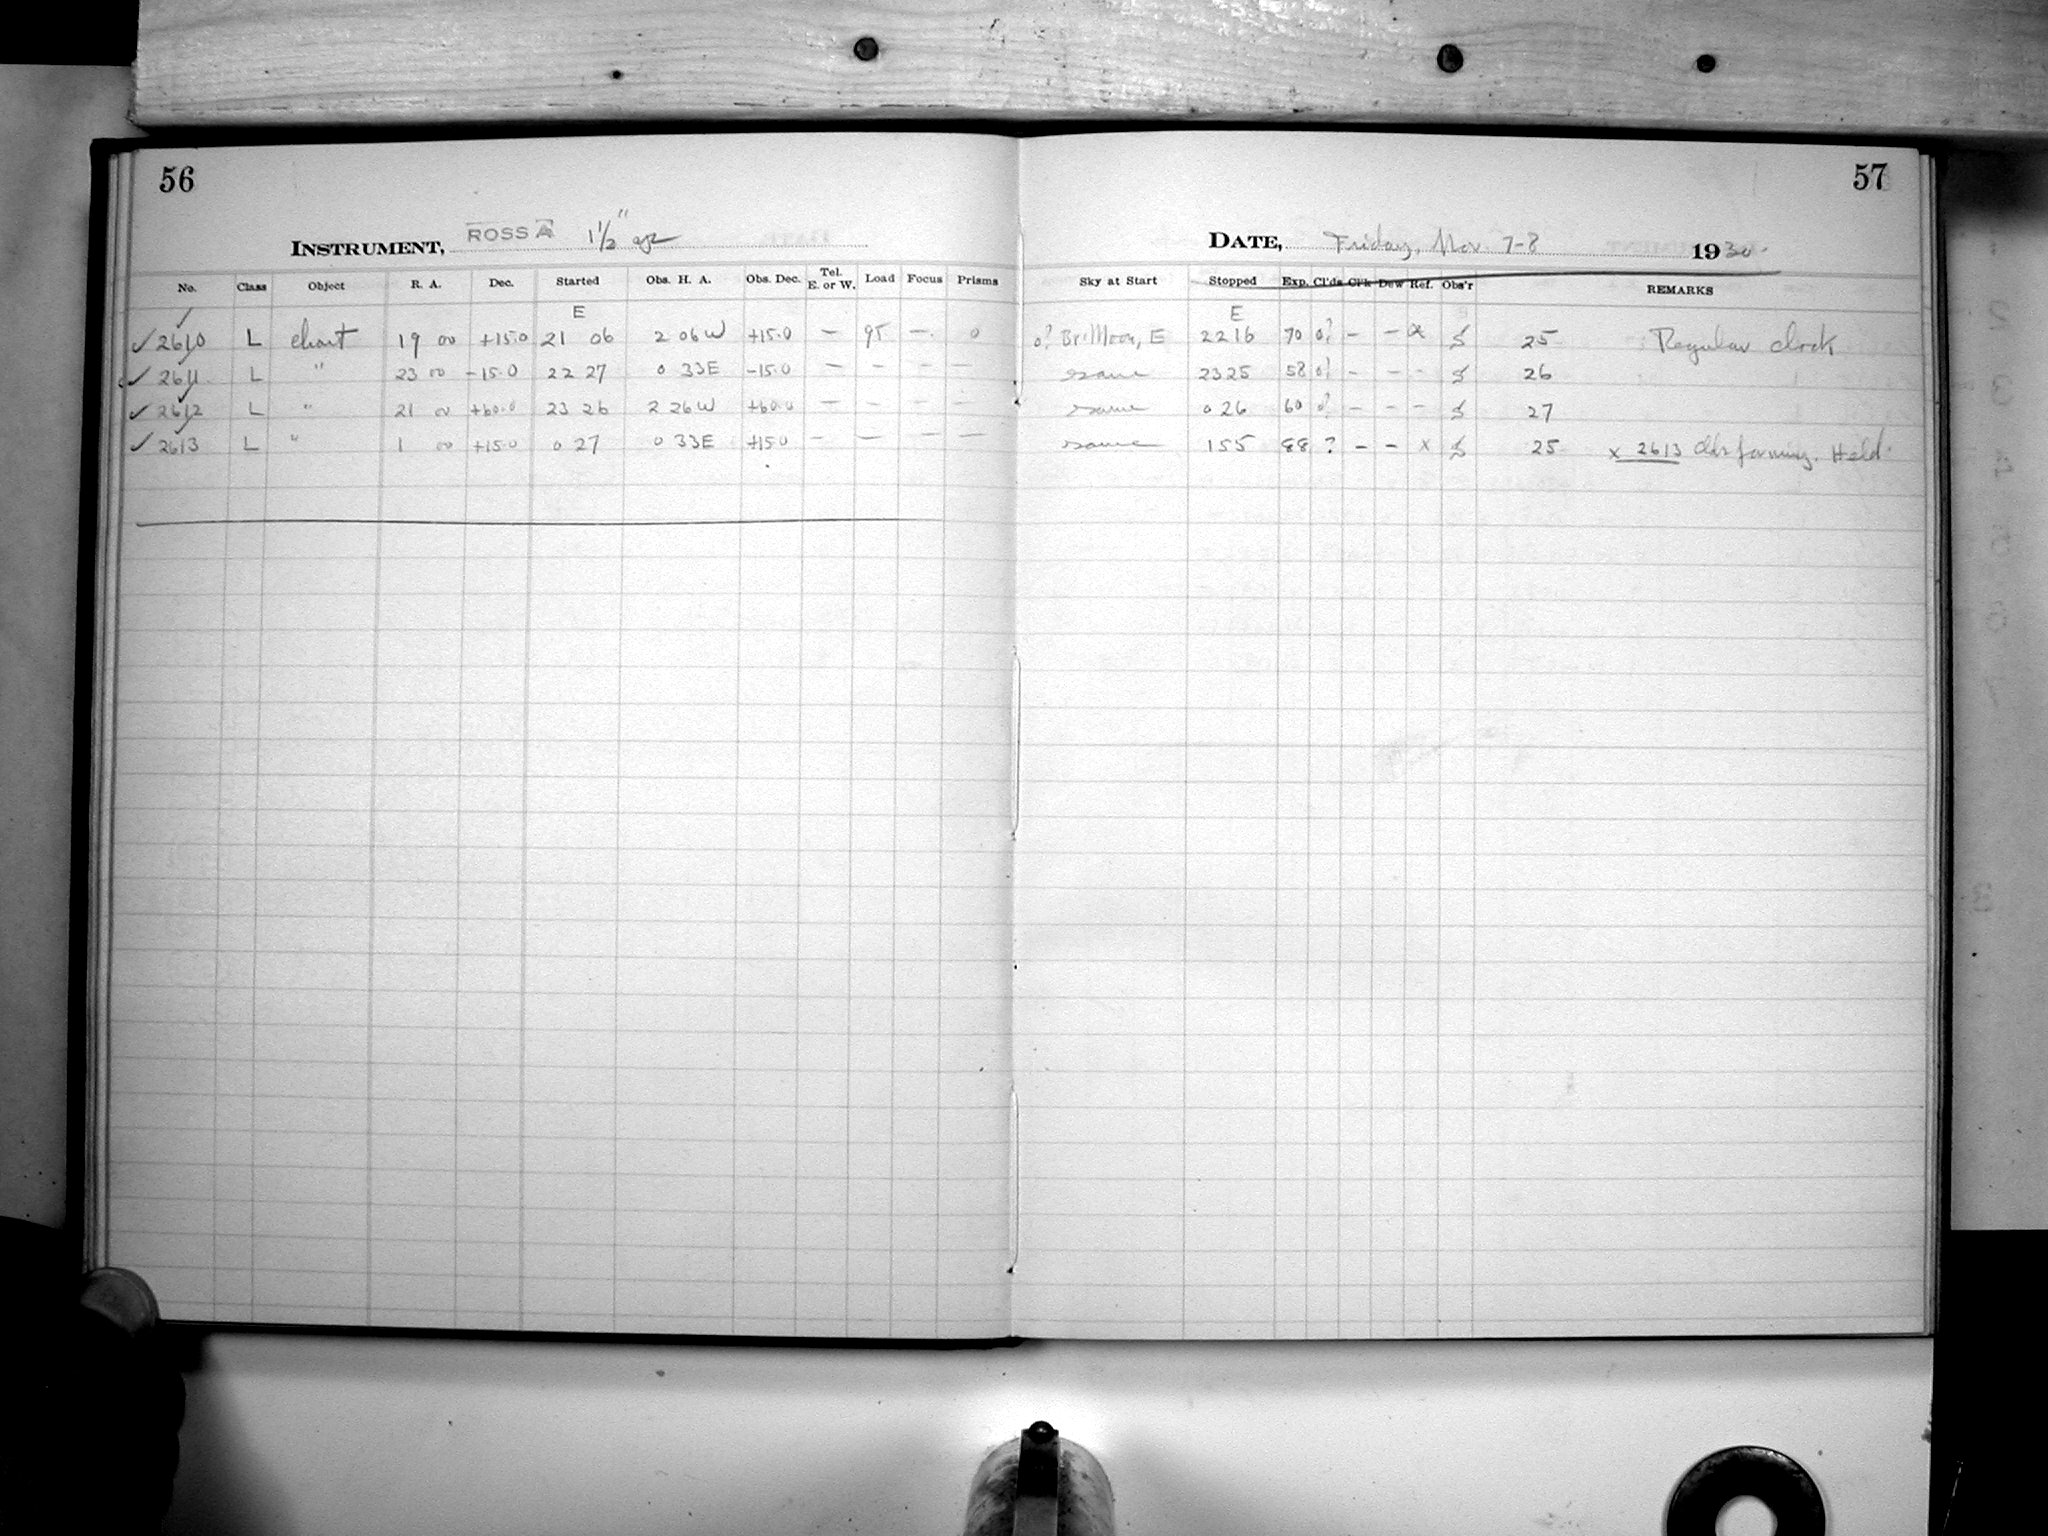 56
INSTRUMENT, ROSS A 1½" ap
No. Class Object R. A. Dec. Started Obs. H. A. Obs. Dec. Tel. E. or W. Load Focus Prisms
E
✓ 2610 L chart 19 00 +15.0 21 06 2 06 W +15.0 — 95 — 0
✓ 2611 L " 23 00 -15.0 22 27 0 33 E -15.0 — - — —
✓ 2612 L " 21 00 +60.0 23 26 2 26 W +60.0 — — — —
✓ 2613 L " 1 00 +15.0 0 27 0 33 E +15.0 — — — —
57
DATE, Friday, Nov. 7-8 1930
Sky at Start Stopped Exp. Cl'ds Cl'k Dew Ref. Obs'r REMARKS
E
0? Br. Moon, E 22 16 70 0? - - 25 Regular clock
same 23 25 58 0? - - - 26
same 0 26 60 0? - - - 27
same 1 55 88 ? - - x 25 x 2613 Clds forming. Held.